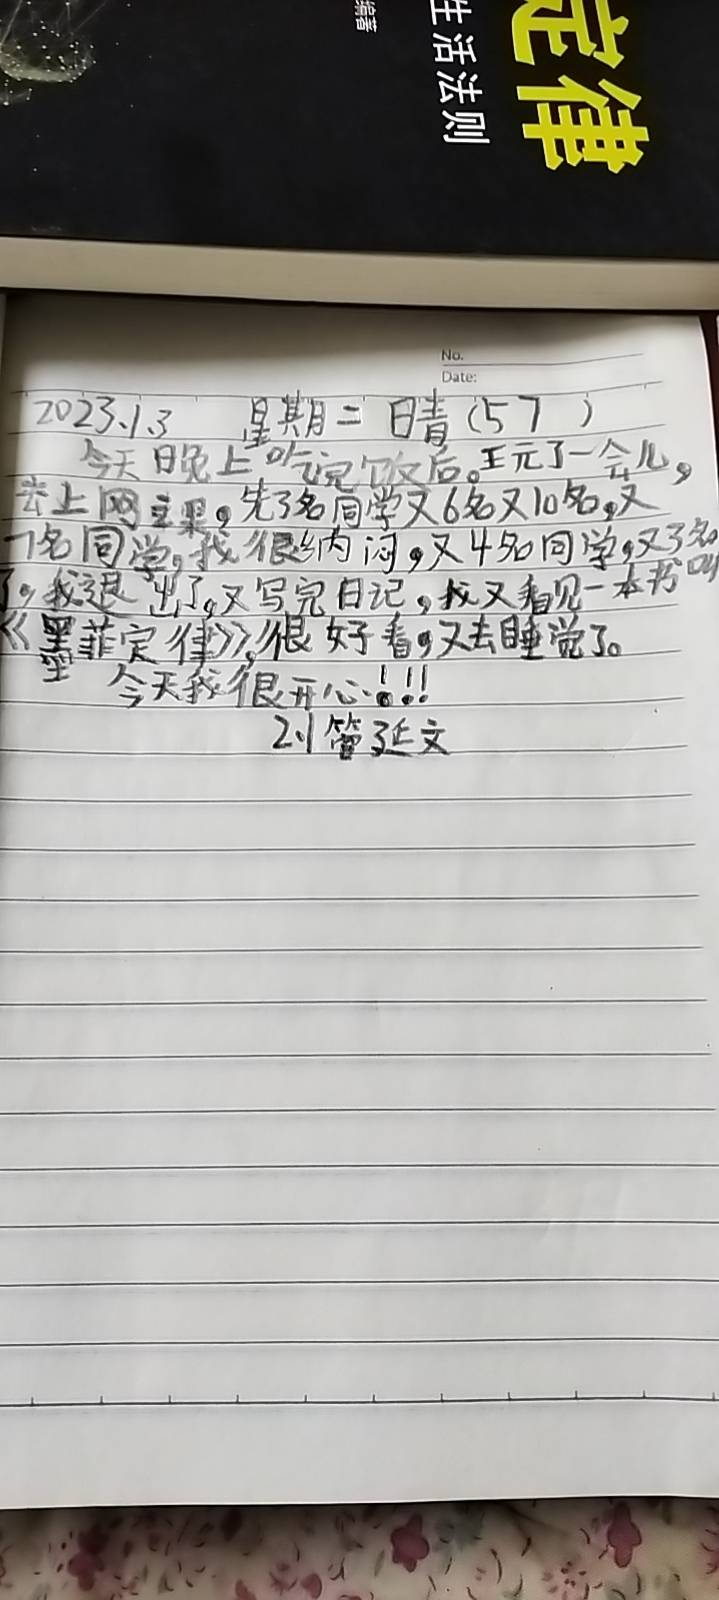 定律
性活法则
编著
No.
Date:
2023.1.3 星期二 晴(57)
今天晚上吃完饭后。玩了一会儿,
去上网课,先3名同学又6名又10名,又
7名同学,我很纳闷,又4名同学,又3名
了,我退出了,又写完日记,我又看见一本书叫
《墨菲定律》,很好看,又去睡觉了。
今天我很开心!!!
2.1管延文